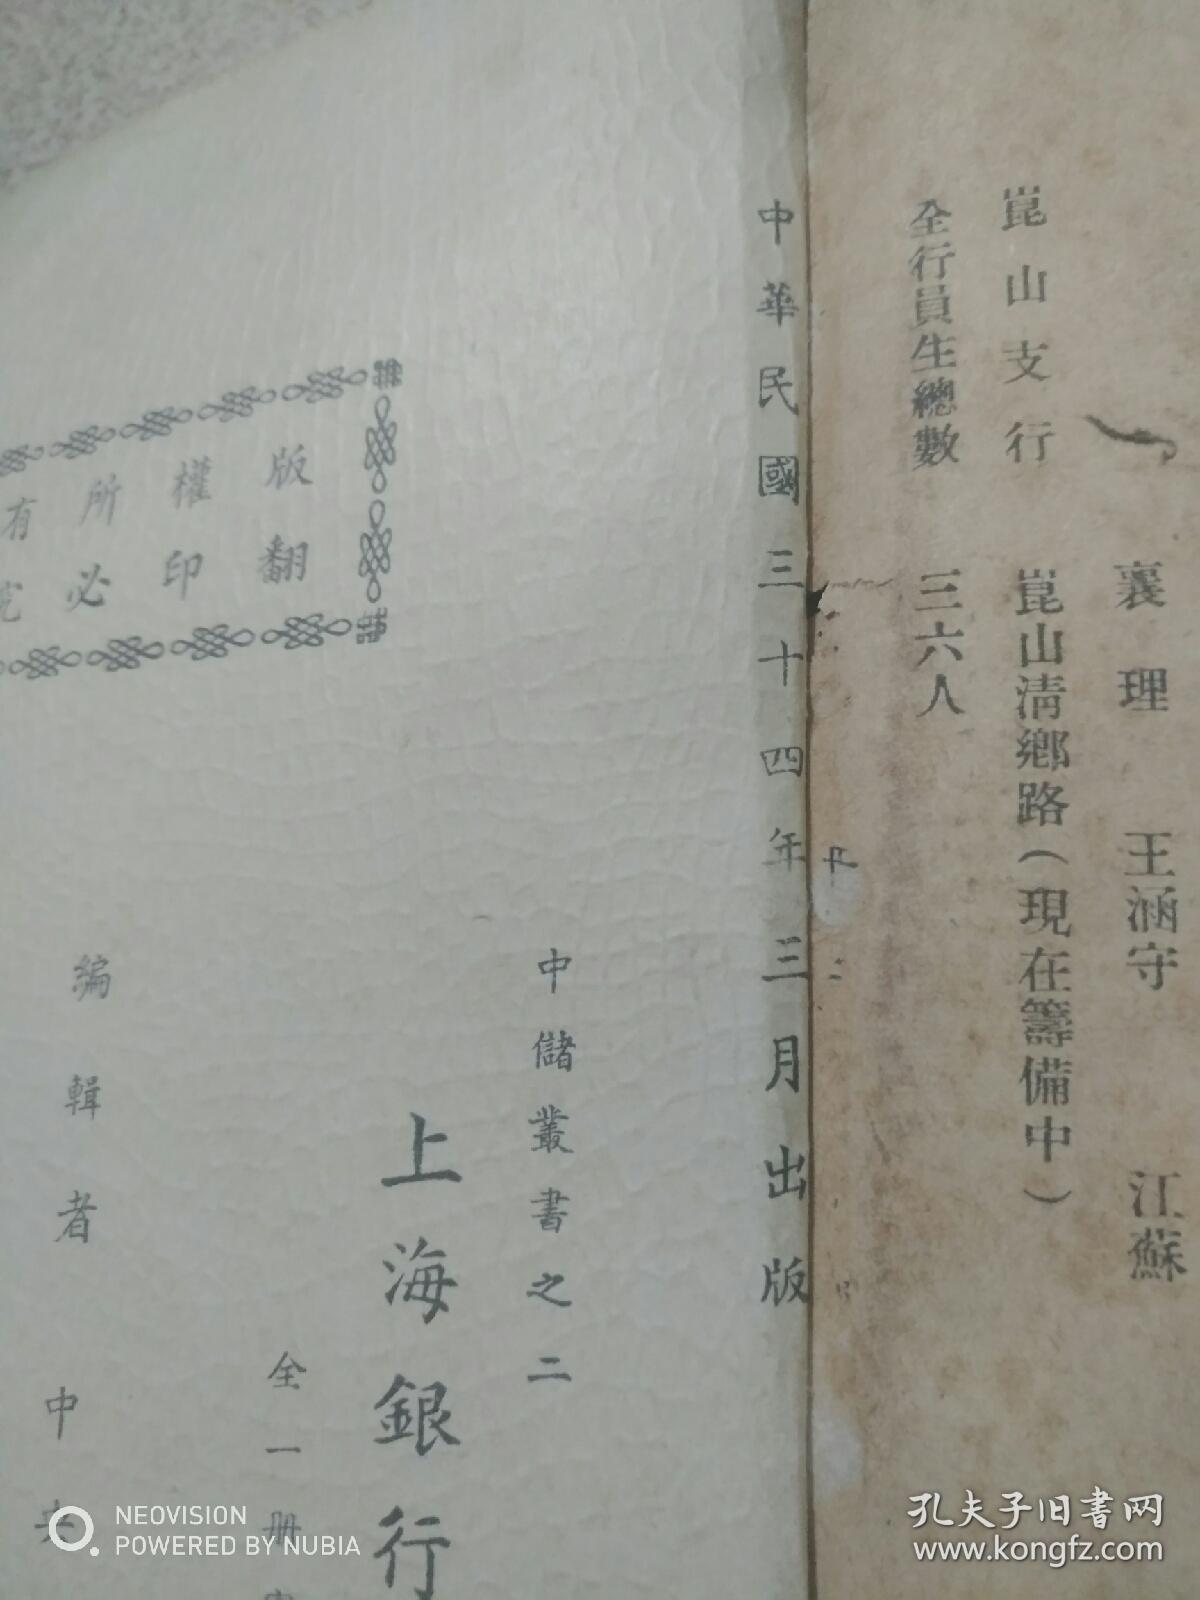 襄理 王涵守 江蘇
崑山支行 崑山清鄉路(現在籌備中)
全行員生總數 三六人
中華民國三十四年三月出版
中儲叢書之二
上海銀行
全一册
版權所有
翻印必究
編輯者 中央
NEOVISION
POWERED BY NUBIA
孔夫子旧书网
www.kongfz.com